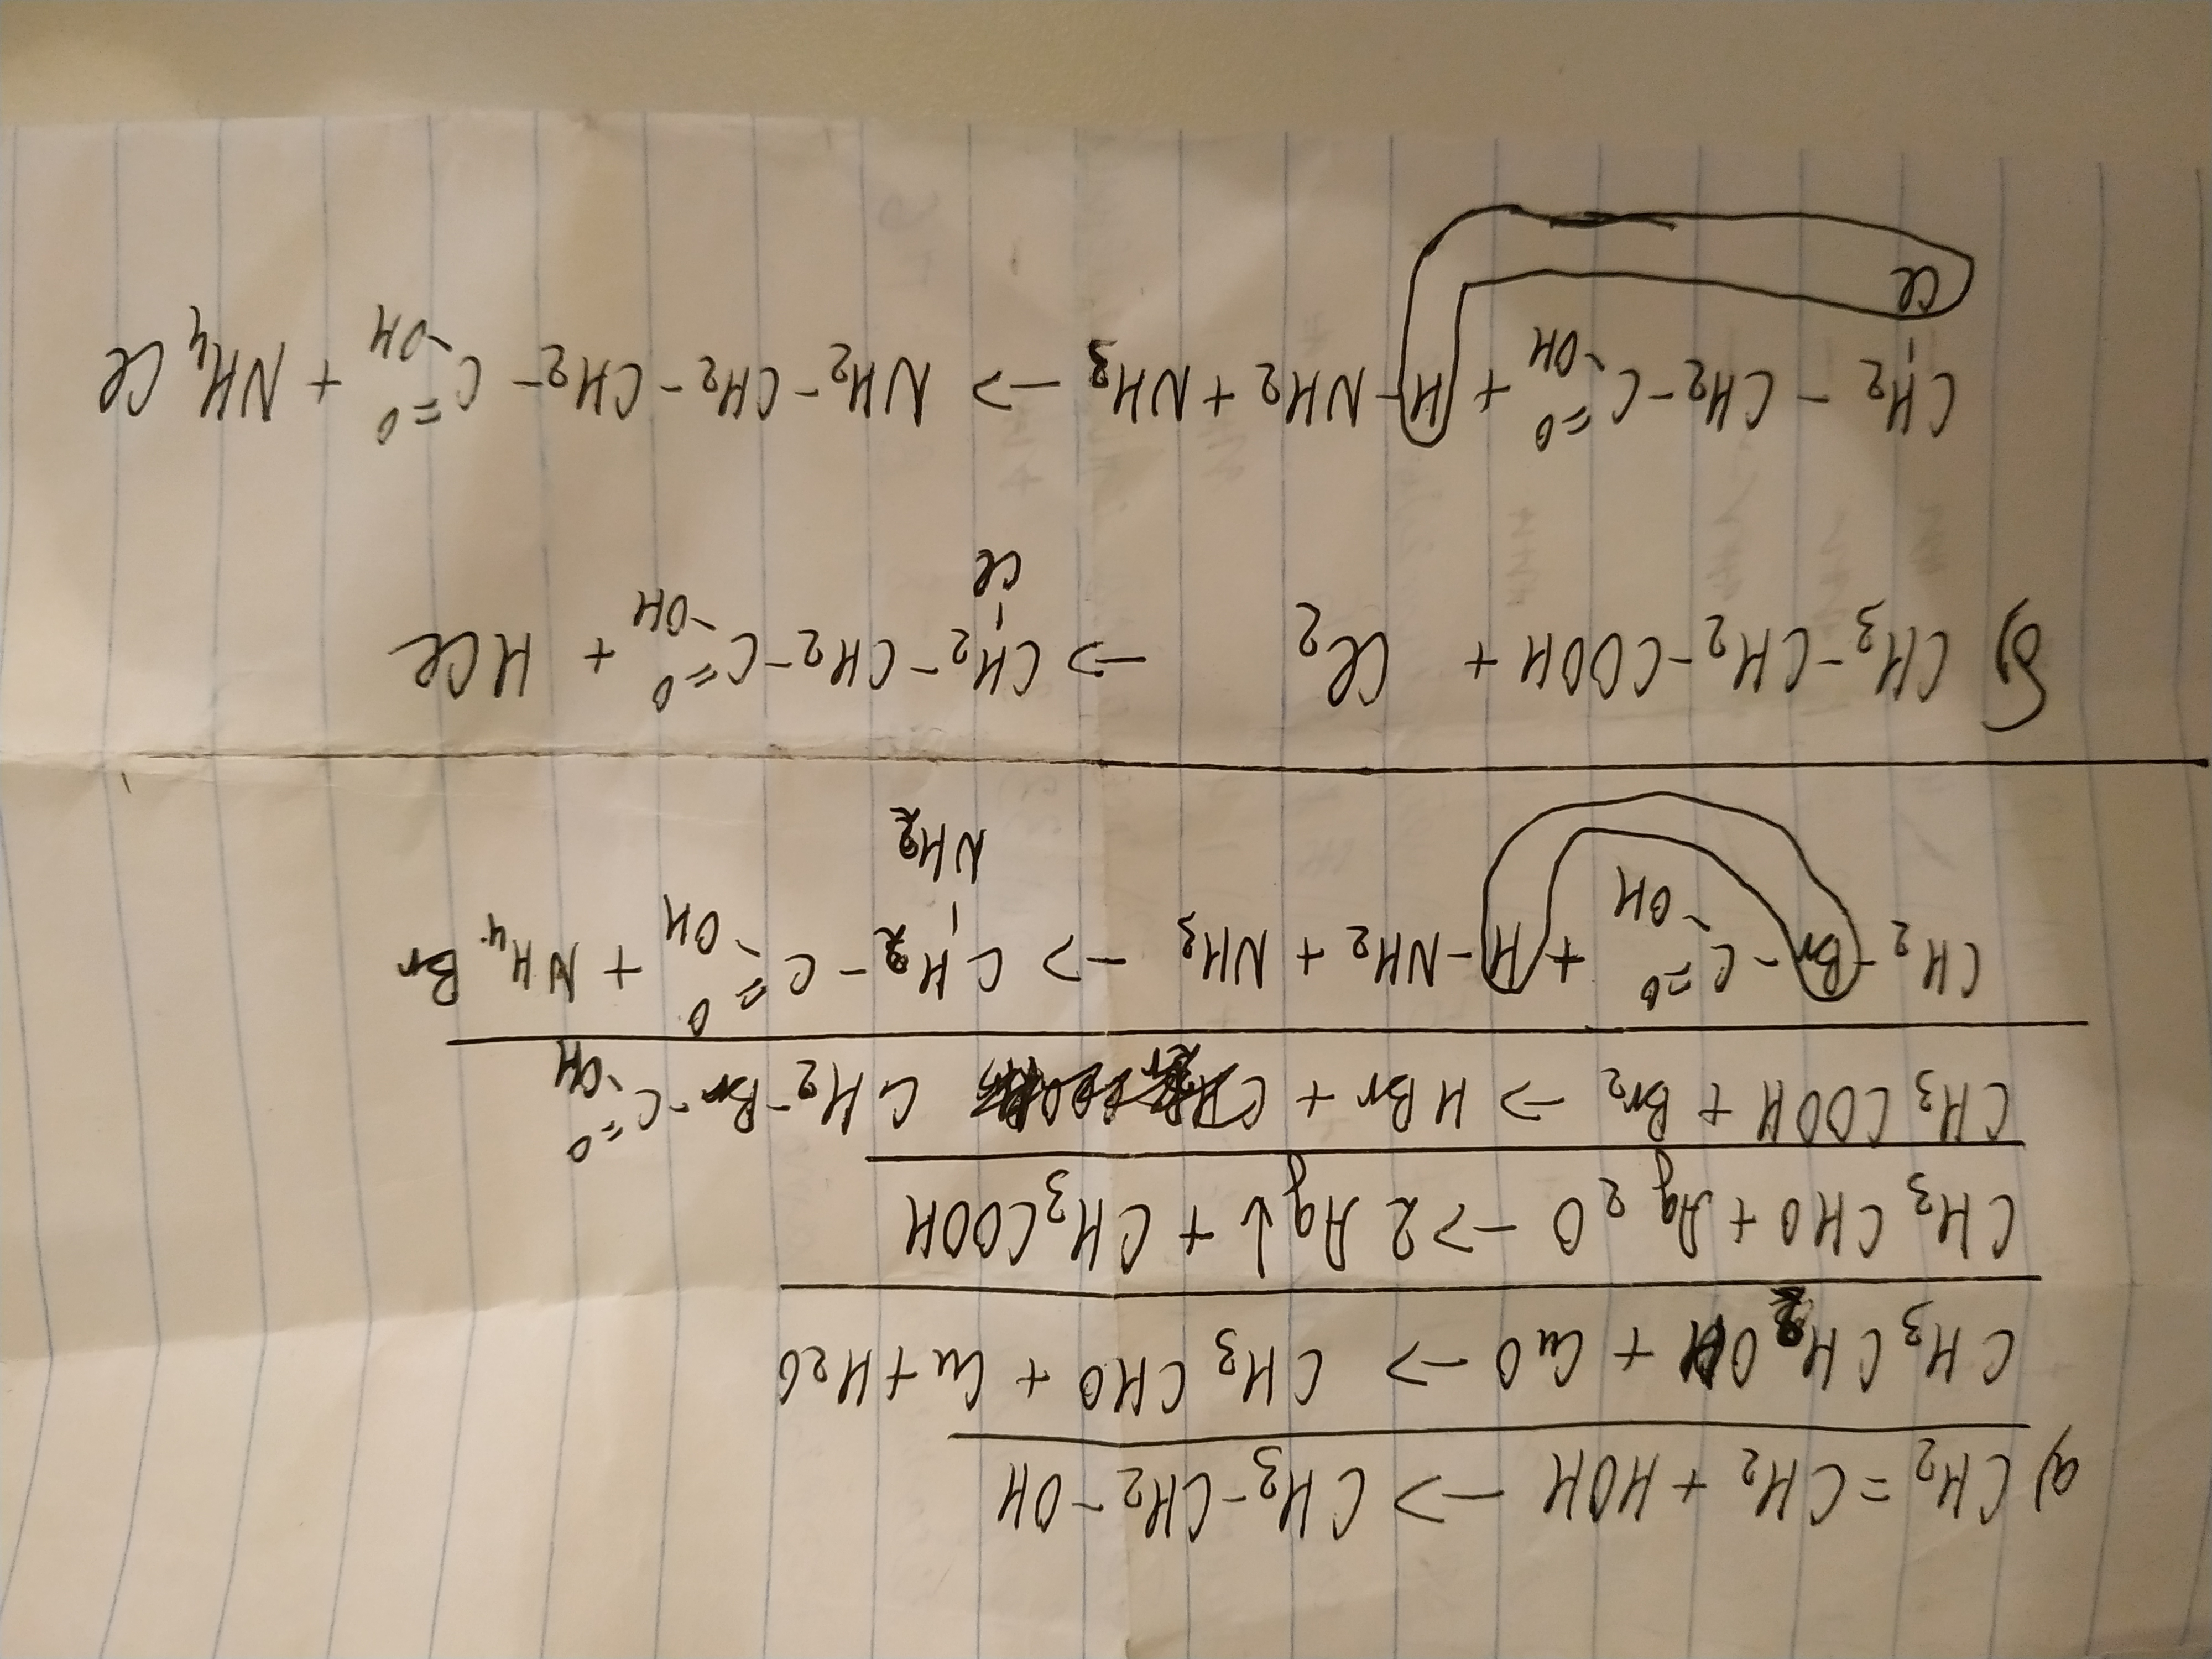 а) CH₂ = CH₂ + HOH —> CH₃ - CH₂ - OH
CH₃CH₂OH + CuO —> CH₃CHO + Cu + H₂O
CH₃CHO + Ag₂O —> 2Ag↓ + CH₃COOH
CH₃COOH + Br₂ —> HBr + CH₂ - Br - C =O -OH
CH₂ - Br - C =O -OH + H - NH₂ + NH₃ —> CH₂ - C =O -OH + NH₄Br
NH₂
б) CH₃ - CH₂ - COOH + Cl₂ —> CH₂ - CH₂ - C =O -OH + HCl
Cl
CH₂ - CH₂ - C =O -OH + H - NH₂ + NH₃ —> NH₂ - CH₂ - CH₂ - C =O -OH + NH₄Cl
Cl